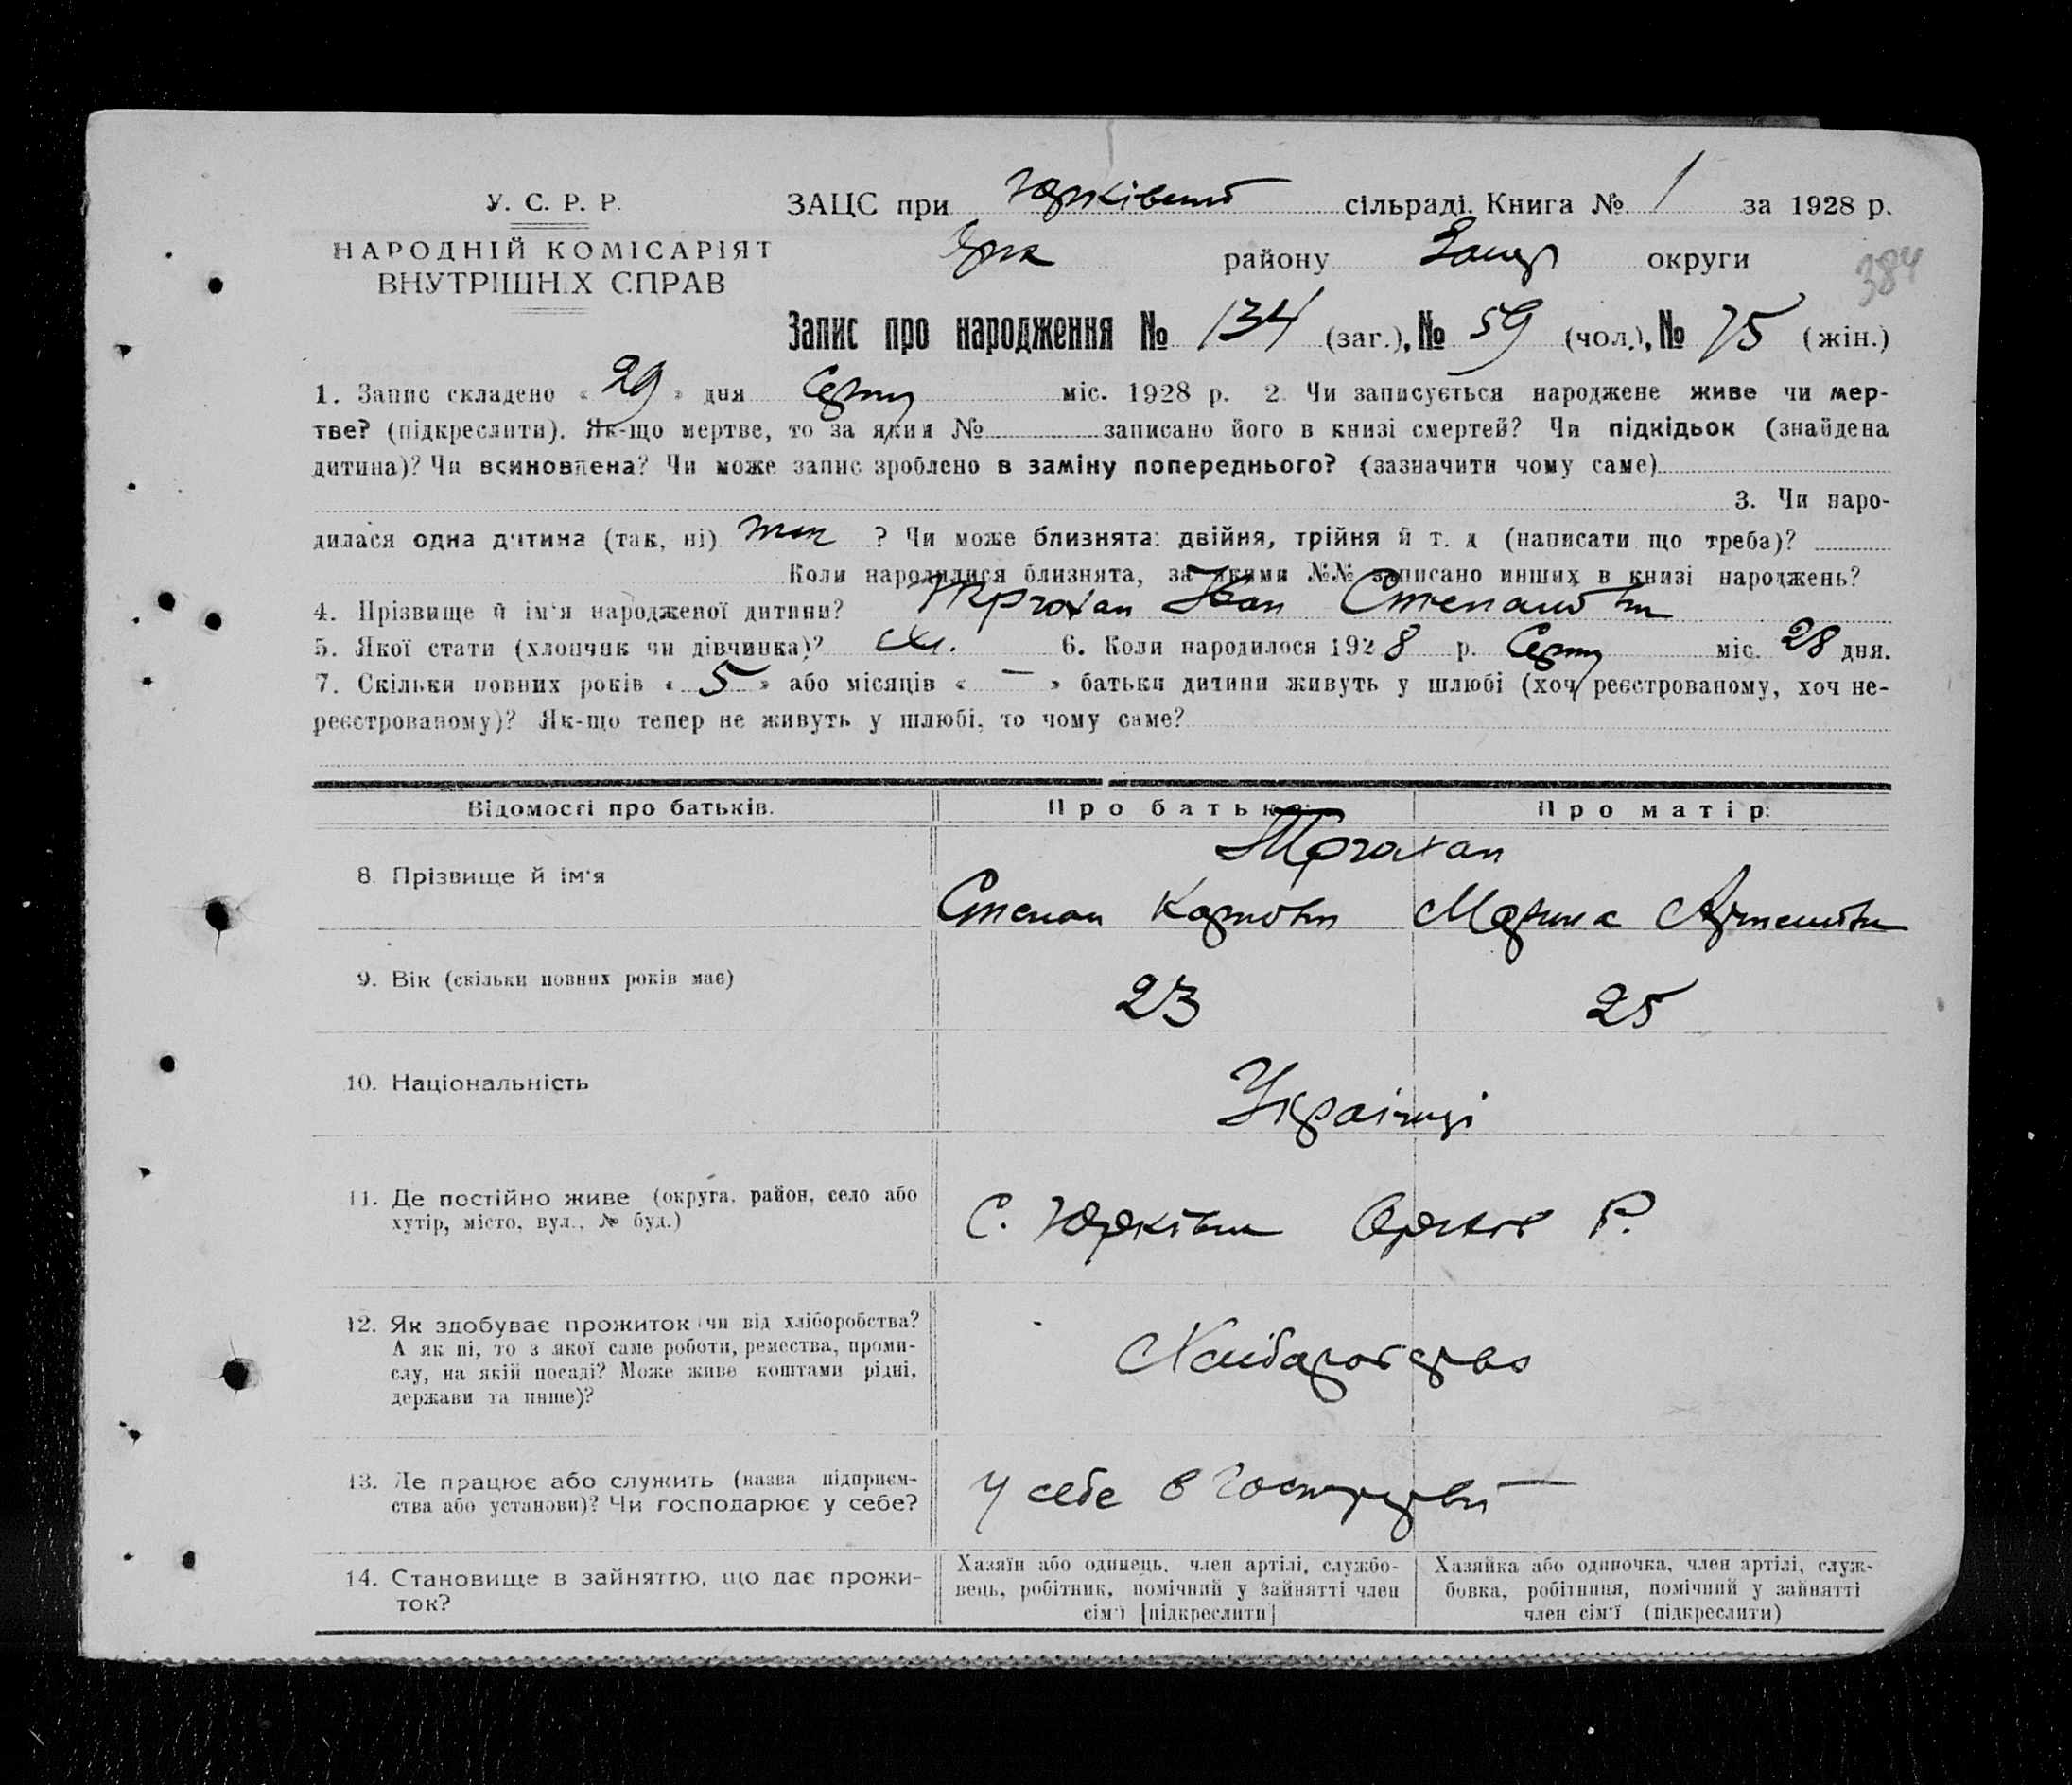 У. С. Р. Р.
НАРОДНІЙ КОМІСАРІЯТ
ВНУТРІШН.Х СПРАВ
ЗАЦС при Юрківській сільраді. Книга № 1 за 1928 р.
району округи
384
Запис про народження № 134 (заг.), № 59 (чол.), № 75 (жін.)
1. Запис складено « 29 » дня Серпн міс. 1928 р. 2. Чи записується народжене живе чи мер-
тве? (підкреслити). Як-що мертве, то за яким № записано його в книзі смертей? Чи підкідьок (знайдена
дитина)? Чи всиновлена? Чи може запис зроблено в заміну попереднього? (зазначити чому саме)
3. Чи наро-
дилася одна дитина (так, ні) так ? Чи може близнята: двійня, трійня й т. д (написати що треба)?
Коли народилися близнята, за якими №№ записано инших в книзі народжень?
4. Прізвище й ім'я народженої дитини? Іван Степанов
5. Якої стати (хлопчик чи дівчинка)? 6. Коли народилося 1928 р. Серпн міс. 28 дня.
7. Скільки повних років « 5 » або місяців « — » батьки дитини живуть у шлюбі (хоч реєстрованому, хоч не-
реєстрованому)? Як-що тепер не живуть у шлюбі, то чому саме?
Відомості про батьків. Про батька: Про матір:
8. Прізвище й ім'я
Степан Карпов Марина Артемовн
9. Вік (скільки повних років має) 23 25
10. Національність Українці
11. Де постійно живе (округа, район, село або
хутір, місто, вул., № буд.)
С. Юрківка Р.
12. Як здобуває прожиток (чи від хліборобства?
А як ні, то з якої саме роботи, ремества, проми-
слу, на якій посаді? Може живе коштами рідні,
держави та инше)?
Хліборобство
13. Де працює або служить (назва підприєм-
ства або установи)? Чи господарює у себе?
у себе в господарстві
14. Становище в зайняттю, що дає прожи-
ток?
Хазяїн або одинець, член артілі, службо-
вець, робітник, помічний у зайнятті член
сім'ї [підкреслити]
Хазяйка або одиночка, член артілі, служ-
бовка, робітниця, помічний у зайнятті
член сім'ї (підкреслити)